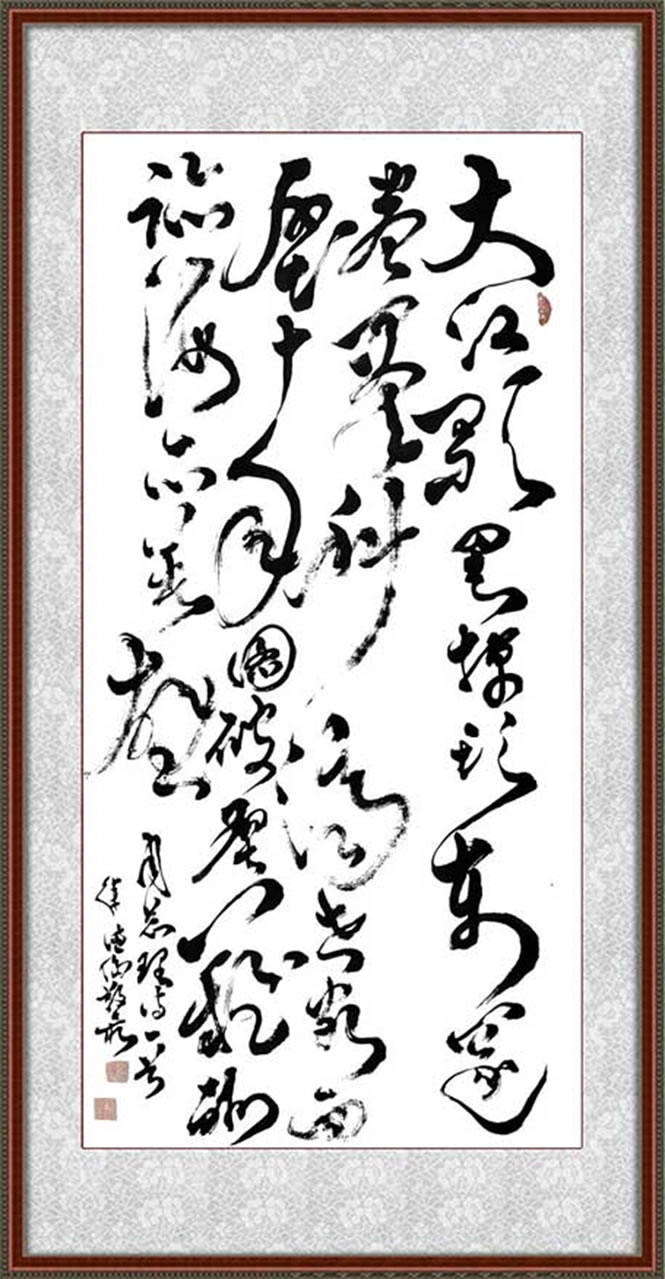 大江歌罷掉頭東邃
密群科濟世窮面
壁十年圖破壁難酬
蹈海亦英雄
周总理诗一首